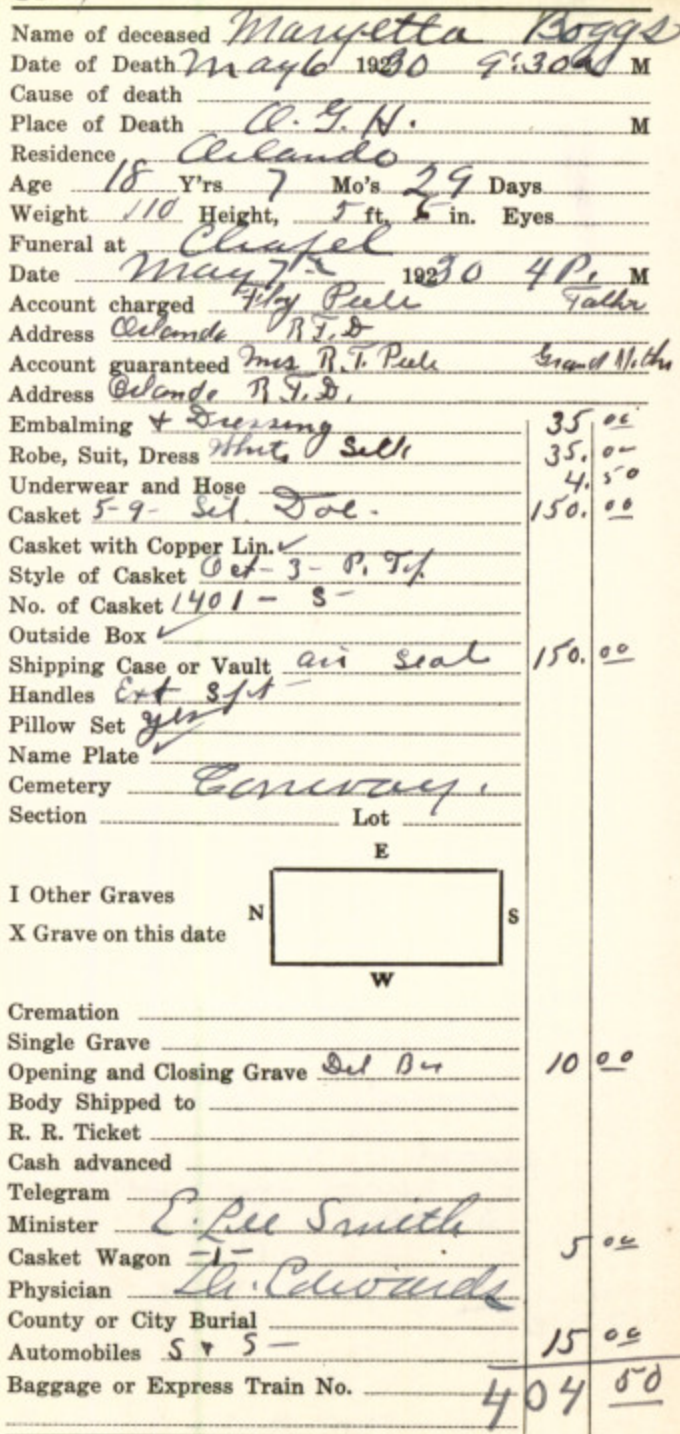 Name of deceased Maryetta Boggs
Date of Death May 6 19230 9:30 a M
Cause of death
Place of Death O. G. H. M
Residence Orlando
Age 18 Y'rs 7 Mo's 29 Days
Weight 110 Height, 5 ft, 6 in. Eyes
Funeral at Chapel
Date May 7th 19230 4 P. M
Account charged Peele Father
Address Orlando R.F.D
Account guaranteed Mrs R.T. Peele Grand Mother
Address Orlando R.F.D.
Embalming & Dressing 35 00
Robe, Suit, Dress White Silk 35. 00
Underwear and Hose 4. 50
Casket 5-9- Sil. Doe. 150. 00
Casket with Copper Lin. ✓
Style of Casket Oct - 3 - P. Top
No. of Casket 1401 - S -
Outside Box ✓
Shipping Case or Vault air seal 150. 00
Handles Ext
Pillow Set yes
Name Plate ✓
Cemetery Conway.
Section Lot
E
I Other Graves
N S
X Grave on this date
W
Cremation
Single Grave
Opening and Closing Grave 10 00
Body Shipped to
R. R. Ticket
Cash advanced
Telegram
Minister E. Lee Smith
Casket Wagon -1- 5 00
Physician Dr. Edwards
County or City Burial
Automobiles S & S - 15 00
Baggage or Express Train No. 404 50